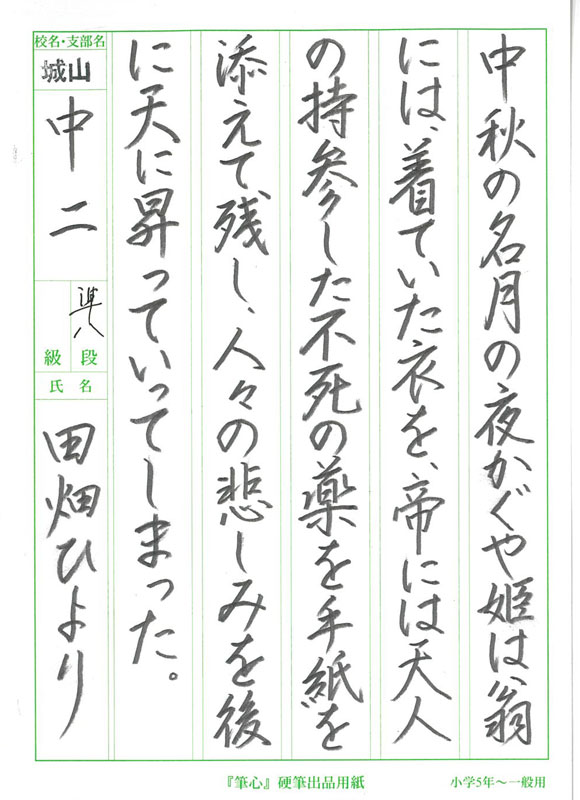 中秋の名月の夜かぐや姫は翁
には、着ていた衣を、帝には天人
の持参した不死の薬を手紙を
添えて残し、人々の悲しみを後
に天に昇っていってしまった。
校名・支部名
城山
中二
準八
級 段
氏名
田畑ひより
『筆心』硬筆出品用紙
小学5年〜一般用